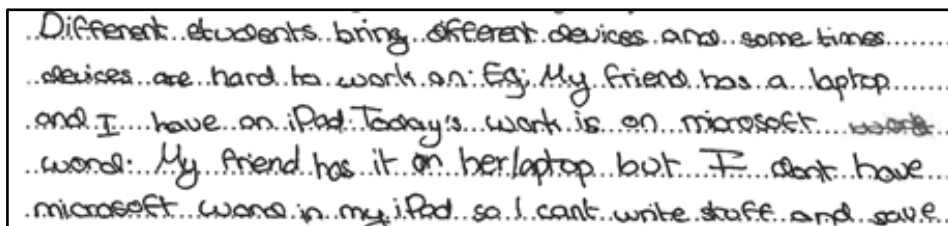 Different students bring different devices and some times
devices are hard to work on. Eg; My friend has a laptop
and I have an iPad. Today's work is on microsoft
word. My friend has it on her laptop but I dont have
microsoft word in my iPad so I cant write stuff and save